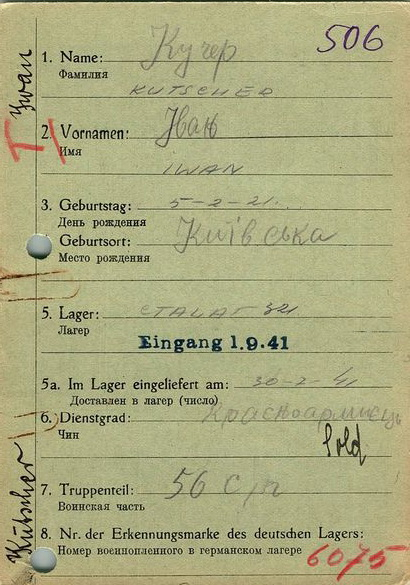 506
1. Name: Кучер
Фамилия
KUTSCHER
2. Vornamen: Іван
Имя
IWAN
3. Geburtstag: 5-2-21.
День рождения
Geburtsort: Київська
Место рождения
5. Lager: СТАЛАГ 321
Лагер
Eingang 1.9.41
5a. Im Lager eingeliefert am: 30-2-41
Доставлен в лагер (число)
6. Dienstgrad: Красноармиець
Чин
Sold
7. Truppenteil: 56 с/п
Воинская часть
8. Nr. der Erkennungsmarke des deutschen Lagers:
Номер военнопленного в германском лагере
6075
Kutscher Iwan